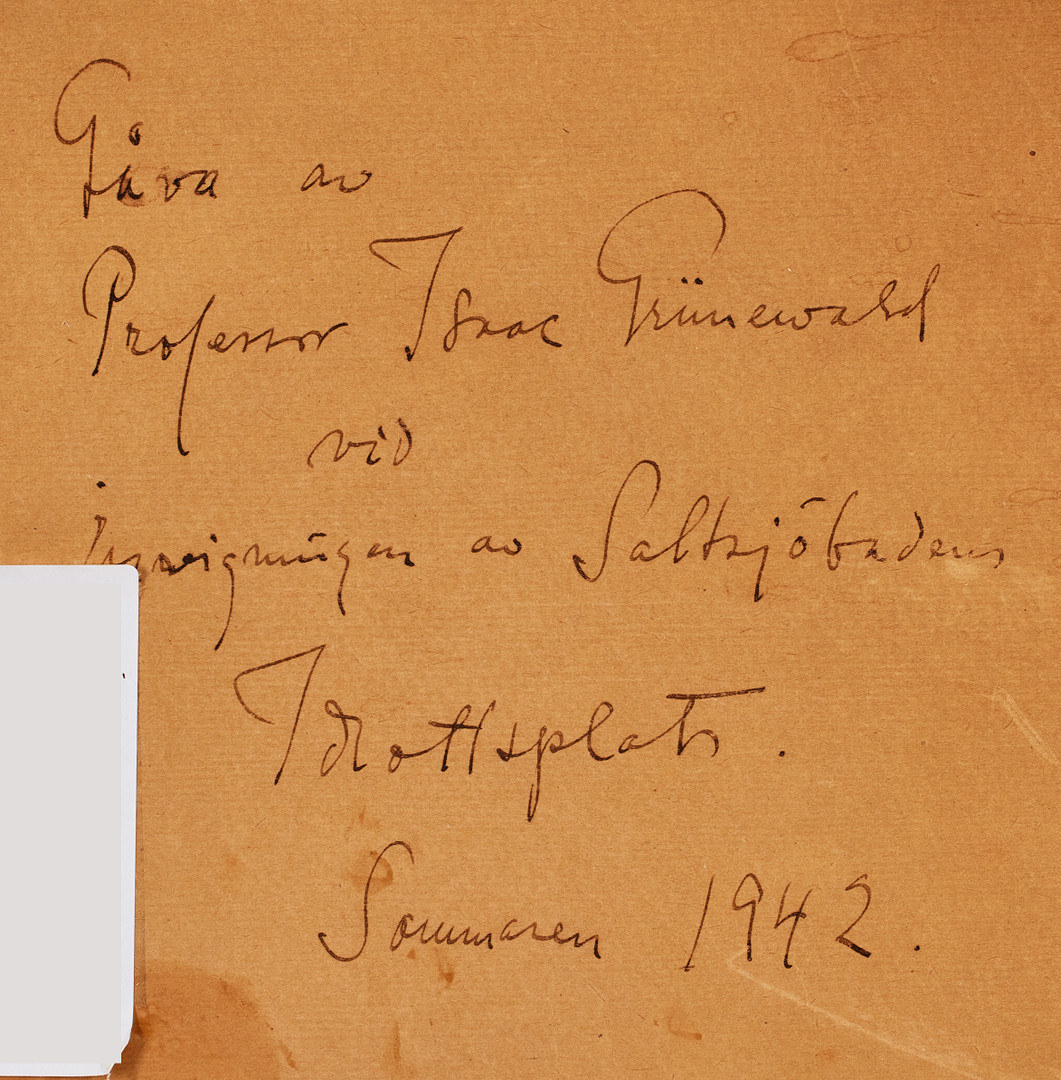 Gåva av
Professor Isaac Grünewald
vid
invigningen av Saltsjöbadens
Idrottsplats.
Sommaren 1942.